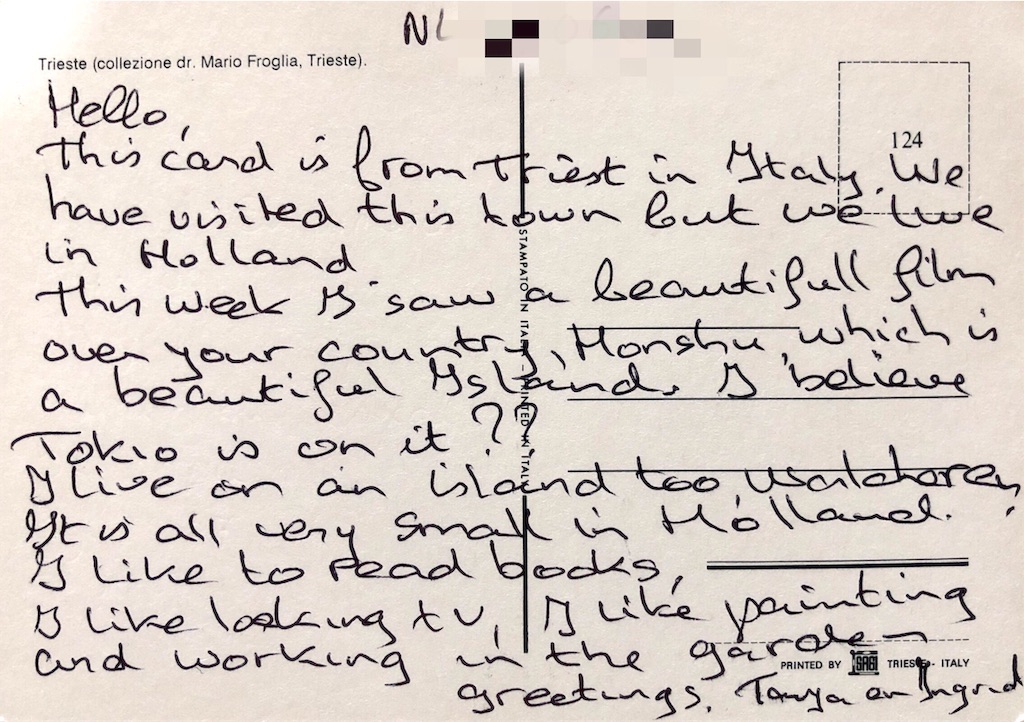 NL
Trieste (collezione dr. Mario Froglia, Trieste).
124
Hello,
This card is from Triest in Italy. We
have visited this town but we live
in Holland
This week I saw a beautifull film
over your country, Honshu, which is
a beautiful Island. I believe
Tokio is on it??
I live on an island too Walcheren,
It is all very small in Holland.
I like to read books,
I like looking tv, I like painting
and working in the garden
greetings, Tanya en Ingrid
STAMPATO IN ITALY - PRINTED IN ITALY
PRINTED BY SAGI TRIESTE - ITALY